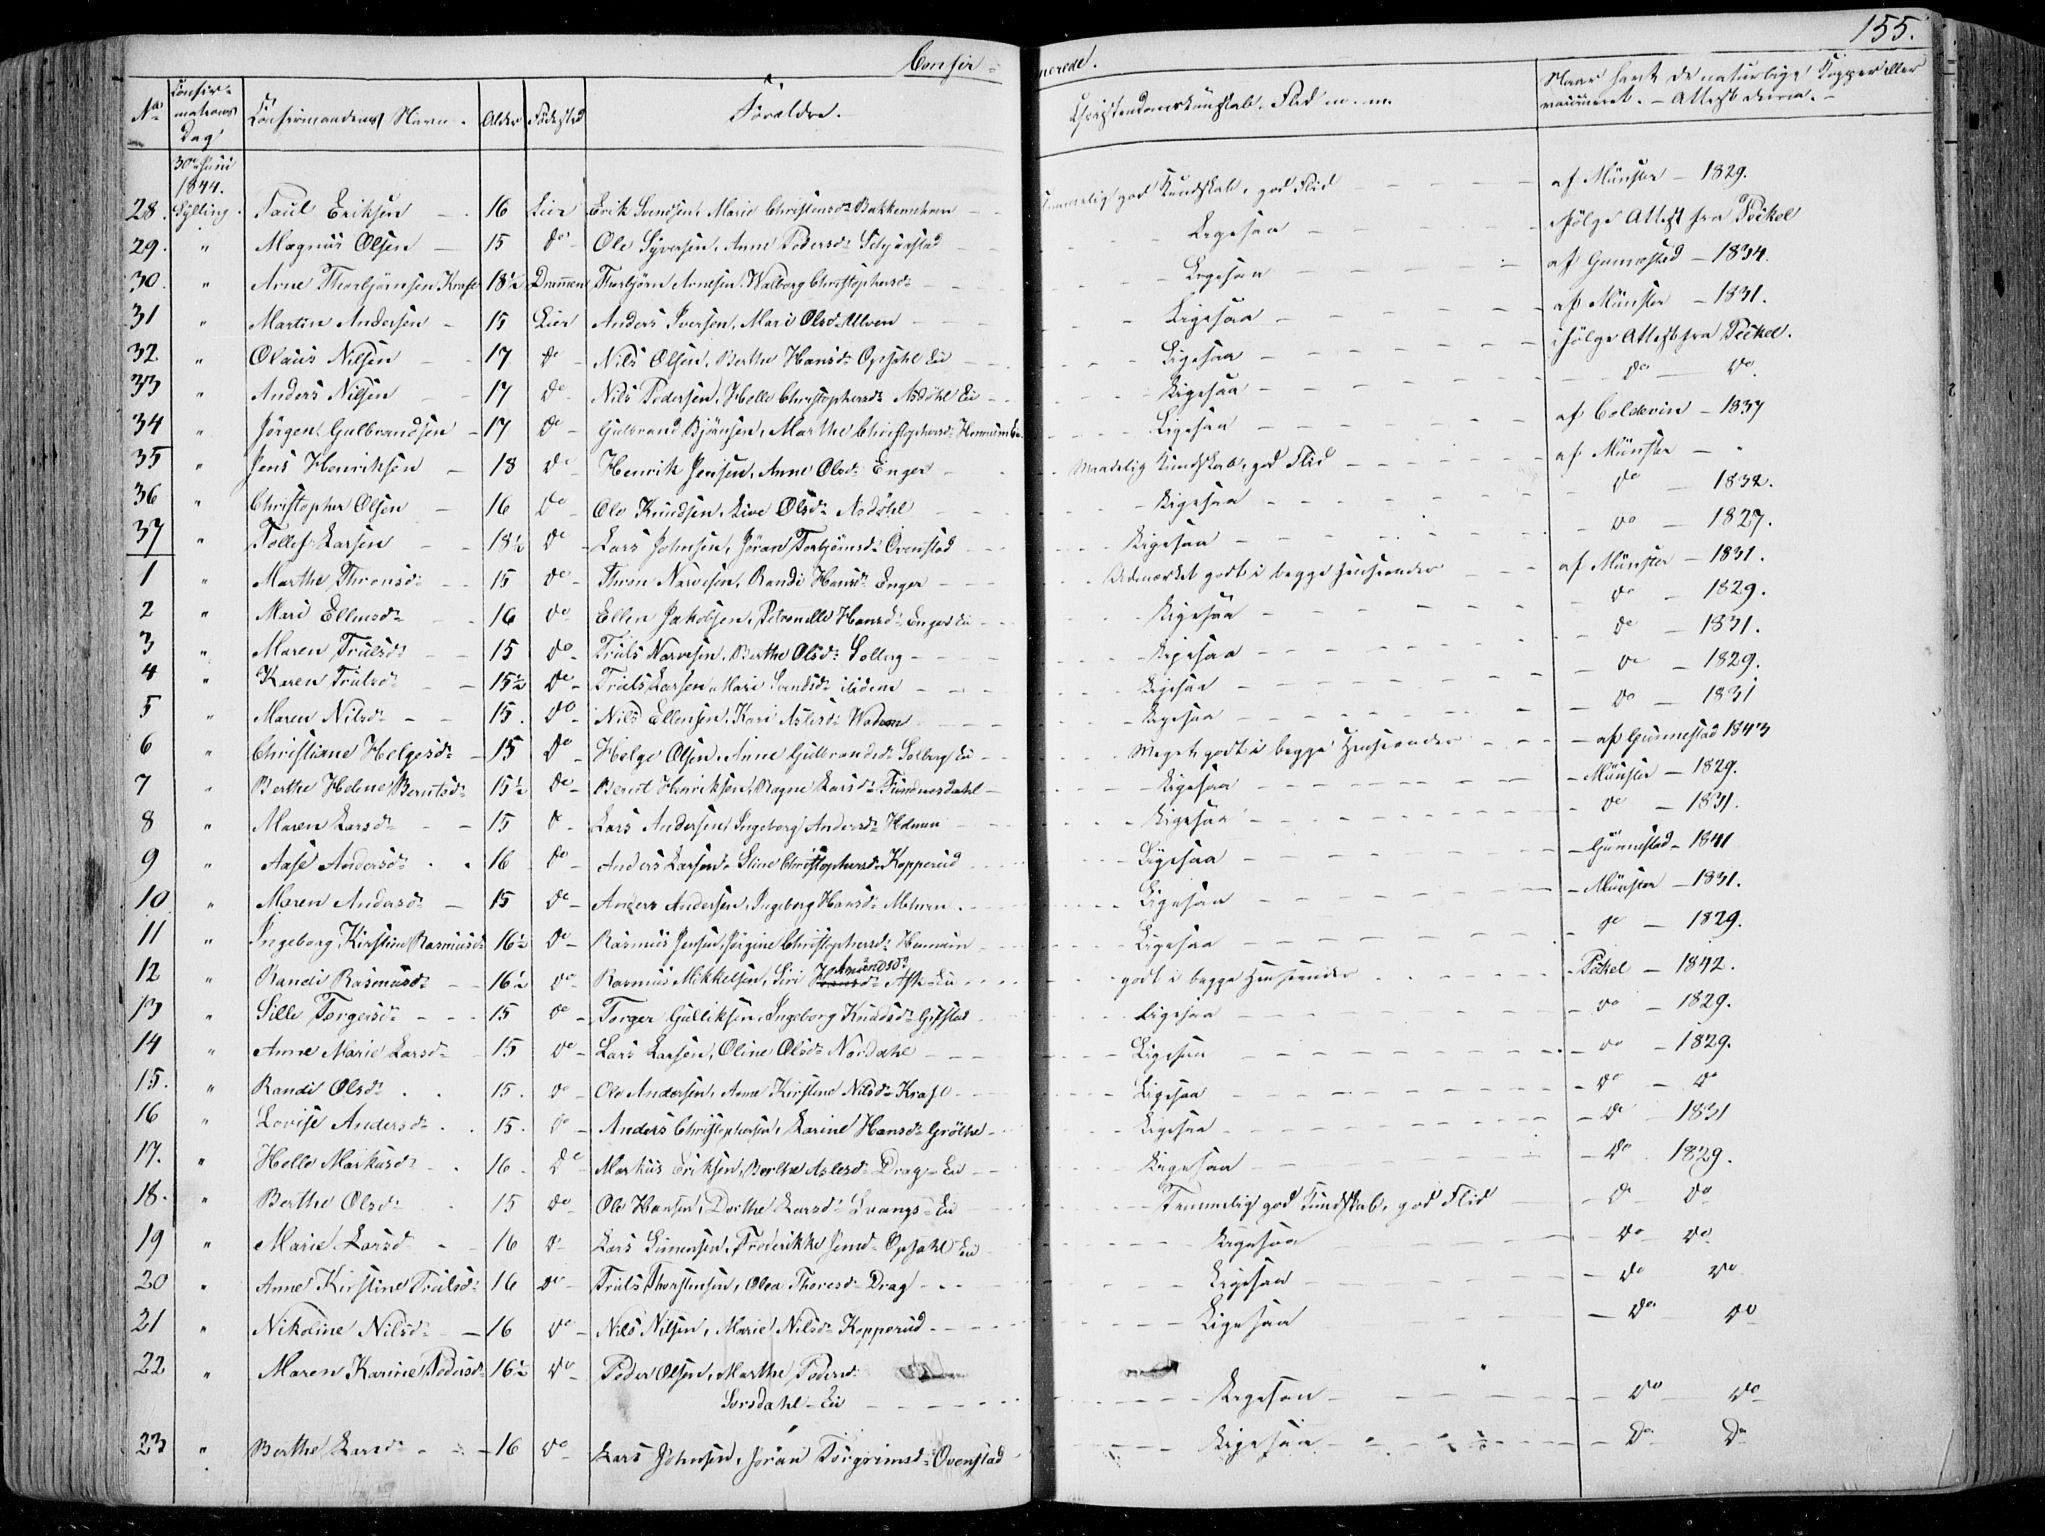 155.
Confir= merede.
No | Confir=mations Dag | Confirmandens Navn. | Alder | Födested | Forældre. | Christendomskundskab, Flid m. m. | Naar havt de naturlige Kopper eller vaccineret. – Attest derom. –
30te Juni 1844.
28. Sylling. Paul Eriksen – 16 Lier Erik Svendsen, Marie Christensdr – – god Kundskab, god Flid – – – af Münster – 1829.
29. " Magnus Olsen – 15 do Ole Syversen, Anne Pedersdr – – Ligesaa – – ifølge Attest fra Peckel
30. " Arne Thorbjörnsen Kraft 18½ Drammen Thorbjörn Arnesen, Walborg Christophersdr – – Ligesaa – – af Gunnestad – 1834.
31 " Martin Andersen – 15 Lier Anders Iversen, Mari Olsdr Ulven – – Ligesaa – – af Münster – 1831.
32. " Olaus Nilsen – 17 do Nils Olsen, Berthe Hansdr Opsahl Ei – – Ligesaa – – ifølge Attest fra Peckel.
33 " Anders Nilsen – 17 do Nils Pedersen, Helle Christophersdr Asdöhl Ei – – Ligesaa – – do – do.
34 " Jörgen Gulbrandsen – 17 do Gulbrand Björnsen, Marthe Christophersdr Hennum Ei. – – Ligesaa – – af Coldevin – 1837
35 " Jens Henriksen – 18 do Henrik Jensen, Anne Olsdr Enger – – Maadelig Kundskab, god Flid – – af Münster – "
36 " Christopher Olsen – 16 do Ole Knudsen, Live Olsdr Asdöhl – – Ligesaa – – do – 1832.
37 " Tollef Larsen – 18½ do Lars Johnsen, Jöran Torbjörnsdr Ovenstad – – Ligesaa – – do – 1827.
1 " Marthe Thronsdr – 15 do Thron Narvesen, Randi Hansdr Enger – – Udmærket godt i begge Henseender – – af Münster – 1831.
2 " Mari Ellensdr – 16 do Ellen Jakobsen, Petronelle Hansdr Enger Ei – – Ligesaa – – do – 1829.
3 " Maren Trulsdr – 15 do Truls Narvesen, Berthe Olsdr Solberg – – Ligesaa – – do – 1831.
4 " Karen Trulsdr – 15½ do Truls Larsen, Mari Svendsdr ibidem – – Ligesaa – – do – 1829.
5 " Maren Nilsdr – 15. do Nils Ellensen, Kari Aslesdr – – Ligesaa – – do – 1831
6 " Christiane Helgesdr – 15 do Helge Olsen, Anne Gulbrandsdr Solberg Ei – – Meget godt i begge Henseender – – af Gunnestad 1843
7 " Berthe Helene Berntsdr 15½ do Bernt Henriksen, Ragne Larsdr – – Ligesaa – – Münster – 1829.
8 " Maren Larsdr – 15 do Lars Andersen, Ingeborg Andersdr – – Ligesaa – – do – 1831.
9 " Aase Andersdr 16 do Anders Larsen, Stine Christophersdr Kopperud – – Ligesaa – – Gunnestad – 1841
10. " Maren Andersdr – 15 do Anders Andersen, Ingeborg Hansdr – – Ligesaa – – Münster – 1831.
11 " Ingeborg Kirstine Rasmusdr 16½ do Rasmus Jensen, Jörgine Christophersdr Hennum – – Ligesaa – – do – 1829.
12 " Randi Rasmusdr – 16½ do Rasmus Mikkelsen, Siri Amundsdr Ask Ei – – godt i begge Henseender – – Peckel – 1842.
13 " Sille Torgersdr – 15 do Torger Gulliksen, Ingeborg Knudsdr Gifstad – – Ligesaa – – do – 1829.
14 " Anne Marie Larsdr 15 do Lars Larsen, Oline Olsdr Nordahl – – Ligesaa – – do – 1829.
15. " Randi Olsdr 15. do Ole Andersen, Anne Kirstine Nilsdr Kraft – – Ligesaa – – do – do
16 " Lovise Andersdr 15. do Anders Christophersen, Karine Hansdr Gröthe – – Ligesaa – – do – 1831
17. " Helle Markusdr 16. do Markus Eriksen, Berthe Aslesdr Drag – Ei – – Ligesaa – – do 1829.
18. " Berthe Olsdr 15 do Ole Hansen, Dorthe Larsdr Svangs – Ei – – Temmelig god Kundskab, god Flid – do do
19 " Marie Larsdr 16 do Lars Simensen, Frederikke Opsahl Ei – – Ligesaa – – do do
20 " Anne Kirstine Trulsdr 16 do Truls Thorstensen, Olea Thoresdr Drag – – Ligesaa – – do do
21 " Nikoline Nilsdr – 16 do Nils Nilsen, Marie Nilsdr Kopperud – – Ligesaa – – do do
22 " Maren Karine Pedersdr 16½ do Peder Olsen, Marthe Pedersdr
Sorsdahl – Ei – – Ligesaa – – do do
23 " Berthe Larsdr – 16 do Lars Johnsen, Jöran Torgrimsdr Ovenstad – – Ligesaa – – do do